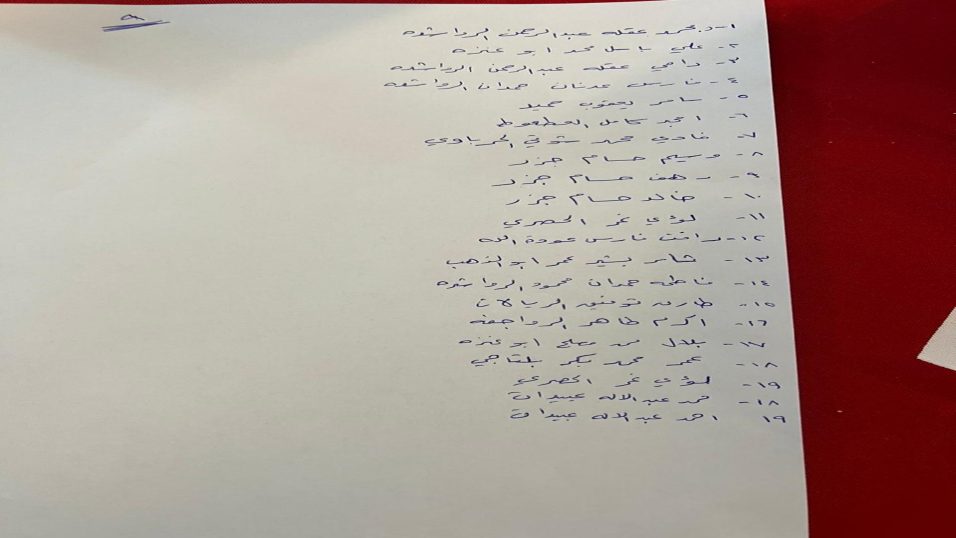 ٩
١- د. محمد عقله عبدالرحمن الرواشده
٢- علي باسل محمد ابو عنزه
٣- راجي عقله عبدالرحمن الرواشده
٤- فارس عدنان حمدان الرواشده
٥- سامر يعقوب حميد
٦- امجد كامل العطعوط
٧- فادي محمد شوقي الحرباوي
٨- وسيم حسام جزر
٩- رهف حسام جزر
١٠- خالد حسام جزر
١١- لؤي نمر الحصري
١٢- رافت فارس عودة الله
١٣- شاس بشير عمر ابو الذهب
١٤- فاطمه حمدان محمود الرواشده
١٥- طارق توفيق الريالات
١٦- اكرم طاهر الرواجفه
١٧- بلال ابو عنزه
١٨- عمر محمد بكر بلقاجي
١٩- لؤي نمر الحصري
١٨- حمد عبدالاله عبيدات
١٩ احمد عبدالاله عبيدات